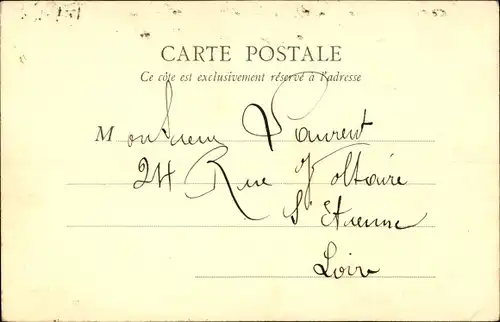 CARTE POSTALE
Ce côte est exclusivement réservé à l'adresse
Monsieur Laurent
24 Rue Voltaire
St Etienne
Loire